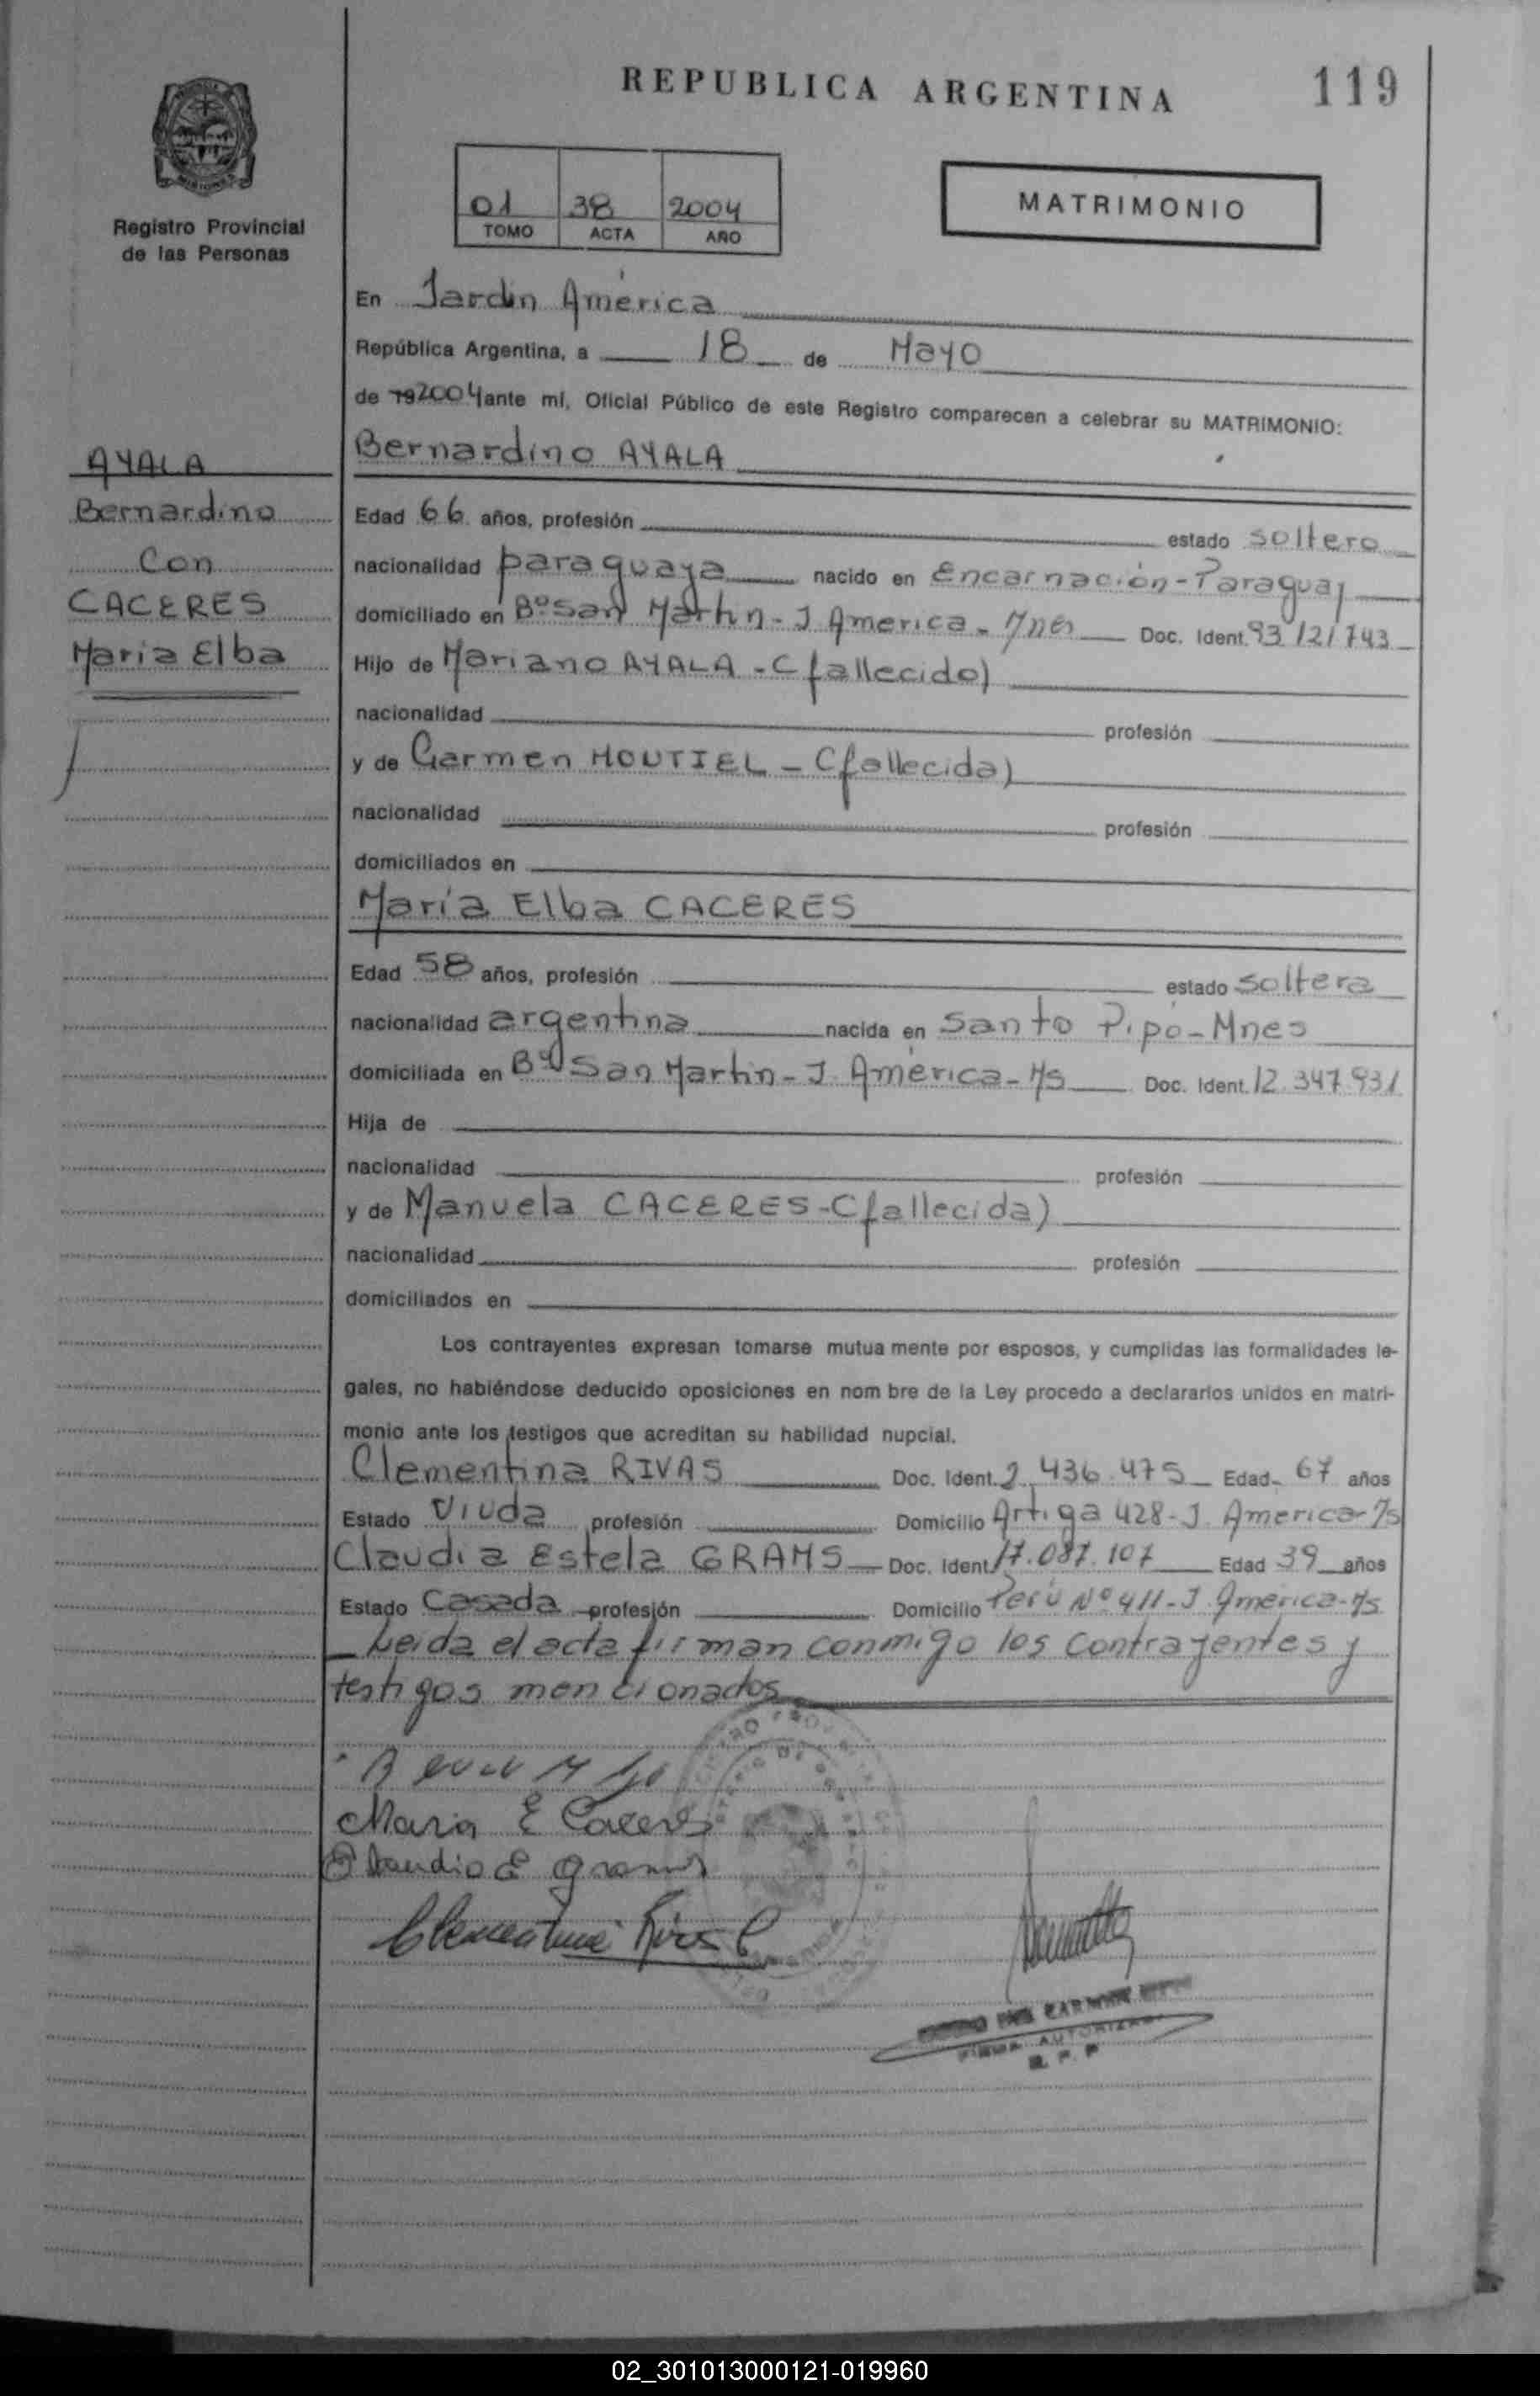 REPUBLICA ARGENTINA
119
Registro Provincial
de las Personas
01 38 2004
TOMO ACTA AÑO
MATRIMONIO
En Jardin América
República Argentina, a 18 de Mayo
de 192004 ante mí, Oficial Público de este Registro comparecen a celebrar su MATRIMONIO:
AYALA
Bernardino
Con
CACERES
María Elba
Bernardino AYALA
Edad 66 años, profesión estado soltero
nacionalidad paraguaya nacido en Encarnación-Paraguay
domiciliado en Bº San Martin - J. America - Mnes Doc. Ident. 93 121 743
Hijo de Mariano AYALA - (fallecido)
nacionalidad profesión
y de Carmen MOUTIEL - (fallecida)
nacionalidad profesión
domiciliados en
María Elba CACERES
Edad 58 años, profesión estado soltera
nacionalidad argentina nacida en Santo Pipó - Mnes
domiciliada en Bº San Martin - J. América - Ms Doc. Ident. 12.347.931
Hija de
nacionalidad profesión
y de Manuela CACERES - (fallecida)
nacionalidad profesión
domiciliados en
Los contrayentes expresan tomarse mutua mente por esposos, y cumplidas las formalidades le-
gales, no habiéndose deducido oposiciones en nom bre de la Ley procedo a declararlos unidos en matri-
monio ante los testigos que acreditan su habilidad nupcial.
Clementina RIVAS Doc. Ident. 2.436.475 Edad 67 años
Estado Viuda profesión Domicilio Artiga 428 - J. America - Ms
Claudia Estela GRAMS Doc. Ident. 17.087.107 Edad 39 años
Estado Casada profesión Domicilio Perú Nº 411 - J. América - Ms
Leida el acta firman conmigo los contrayentes y
testigos mencionados
Maria E Caceres
Claudia E Grams
Clementina Rivas
FIRMA AUTORIZADA
R. P. P
02_301013000121-019960